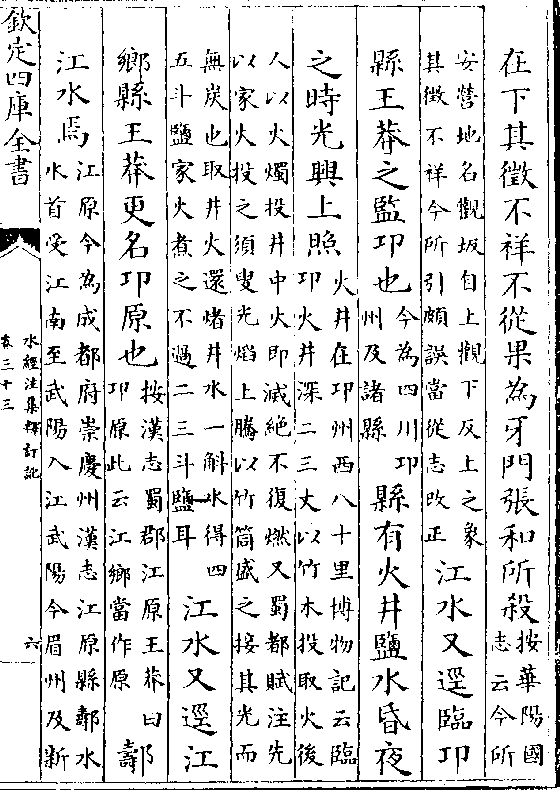 在下其徵不祥不從果為牙門張和所殺按華陽國
志云今所
安營地名觀坂自上觀下反上之象
其徵不祥今所引頗誤當從志改正江水又逕臨邛
縣王莽之監邛也今為四川邛
州及諸縣縣有火井鹽水昏夜
之時光興上照火井在邛州西八十里博物記云臨
邛火井深二三丈以竹木投取火後
人以火燭投井中火即滅絕不復燃又蜀都賦注先
以家火投之須叟光焰上騰以竹筒盛之接其光而
無炭也取井火還煮井水一斛水得四
五斗鹽家火煮之不過二三斗鹽耳江水又逕江
鄉縣王莽更名邛原也按漢志蜀郡江原王莽曰
邛原此云江鄉當作原䣝
江水焉江原今為成都府崇慶州漢志江原縣䣝水
水首受江南至武陽入江武陽今眉州及新
欽定四庫全書
水經注集釋訂訛
卷三十三
六